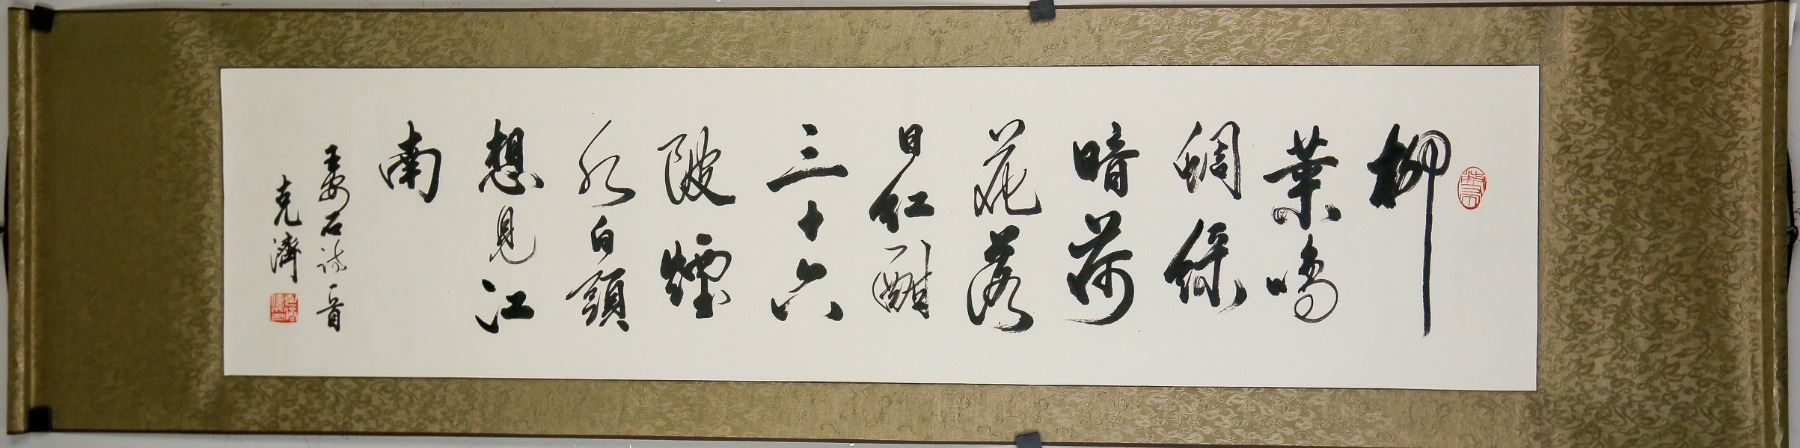 柳
葉鳴
蜩綠
暗荷
花落
日紅酣
三十六
陂煙
水白頭
想見江
南
王安石詩一首
克濟